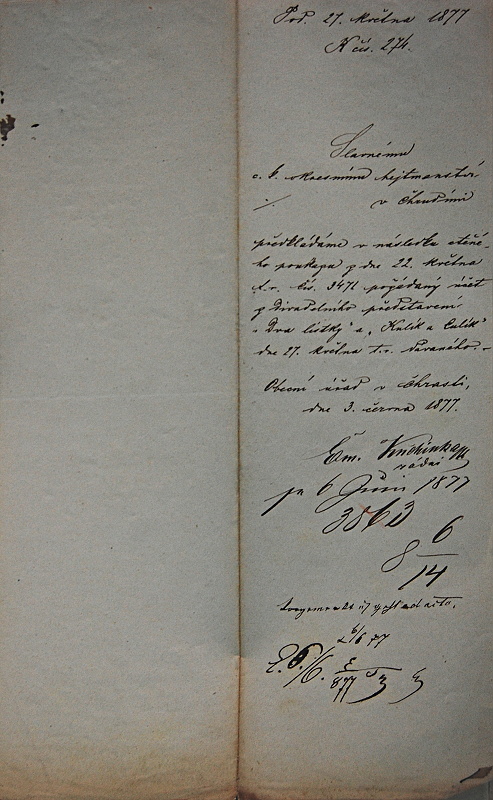 Pod. 27. května 1877
K čís. 274.
Slavnému
c. k. okresnímu hejtmanství
v Chrudimi
předkládáme v následku ctěné-
ho poukazu z dne 22. května
t. r. čís. 3471 požádaný účet
z divadelního představení
„Dva lístky" a „Kulík a Culík"
dne 27. května t. r. dávaného.-
Obecní úřad v Chrasti,
dne 3. června 1877.
Em.
radní
pr 6 Juni 1877
3863
8 6/14
6/6 77
E. 6/6.
877